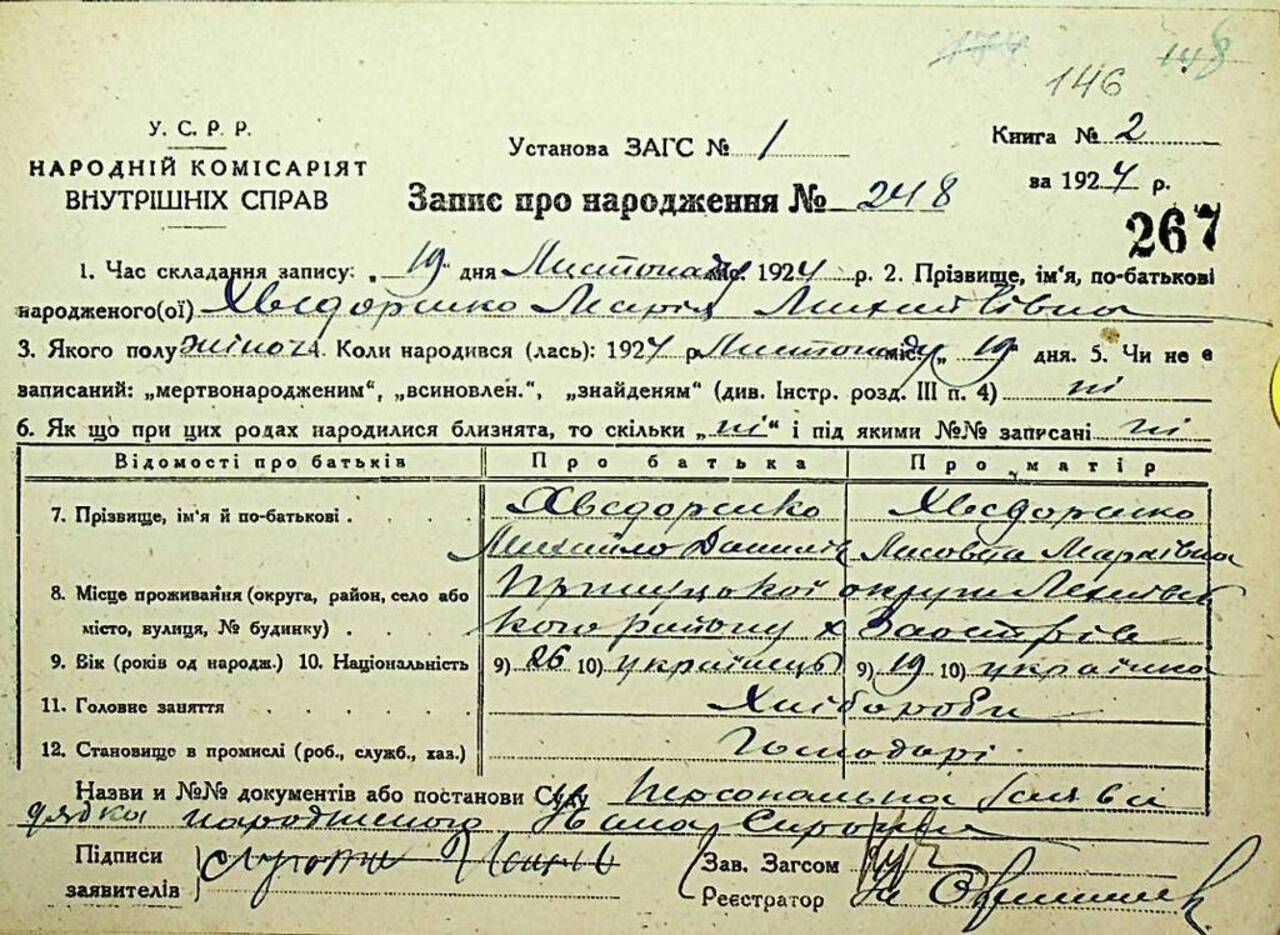 146 148
У. С. Р. Р.
НАРОДНІЙ КОМІСАРІЯТ
ВНУТРІШНІХ СПРАВ
Установа ЗАГС № 1
Книга № 2
за 1924 р.
Запис про народження № 248
267
1. Час складання запису: „ 19 дня Листопаду міс. 1924 р. 2. Прізвище, ім'я, по-батькові
народженого(ої) Хведоренко Марія Михайлівна
3. Якого полу жіноч. 4. Коли народився (лась): 1924 р. Листопаду міс. „ 19 " дня. 5. Чи не є
записаний: „мертвонародженим“, „всиновлен.“, „знайденям“ (див. Інстр. розд. III п. 4) ні
6. Як що при цих родах народилися близнята, то скільки „ ні “ і під якими №№ записані ні
Відомості про батьків Про батька Про матір
7. Прізвище, ім'я й по-батькові . Хведоренко Хведоренко
Михайло Данилів Лисовета Марківна
8. Місце проживання (округа, район, село або Прилуцької округи
місто, вулиця, № будинку) . кого району х Заострів
9. Вік (років од народж.) 10. Національність 9) 26 10) українець 9) 19 10) українка
11. Головне заняття Хлібороби
12. Становище в промислі (роб., служб., хаз.) Господарі
Назви и №№ документів або постанови Суду Персональна заява
дядка народженого Івана
Підписи
заявителів
Зав. Загсом
Реєстратор